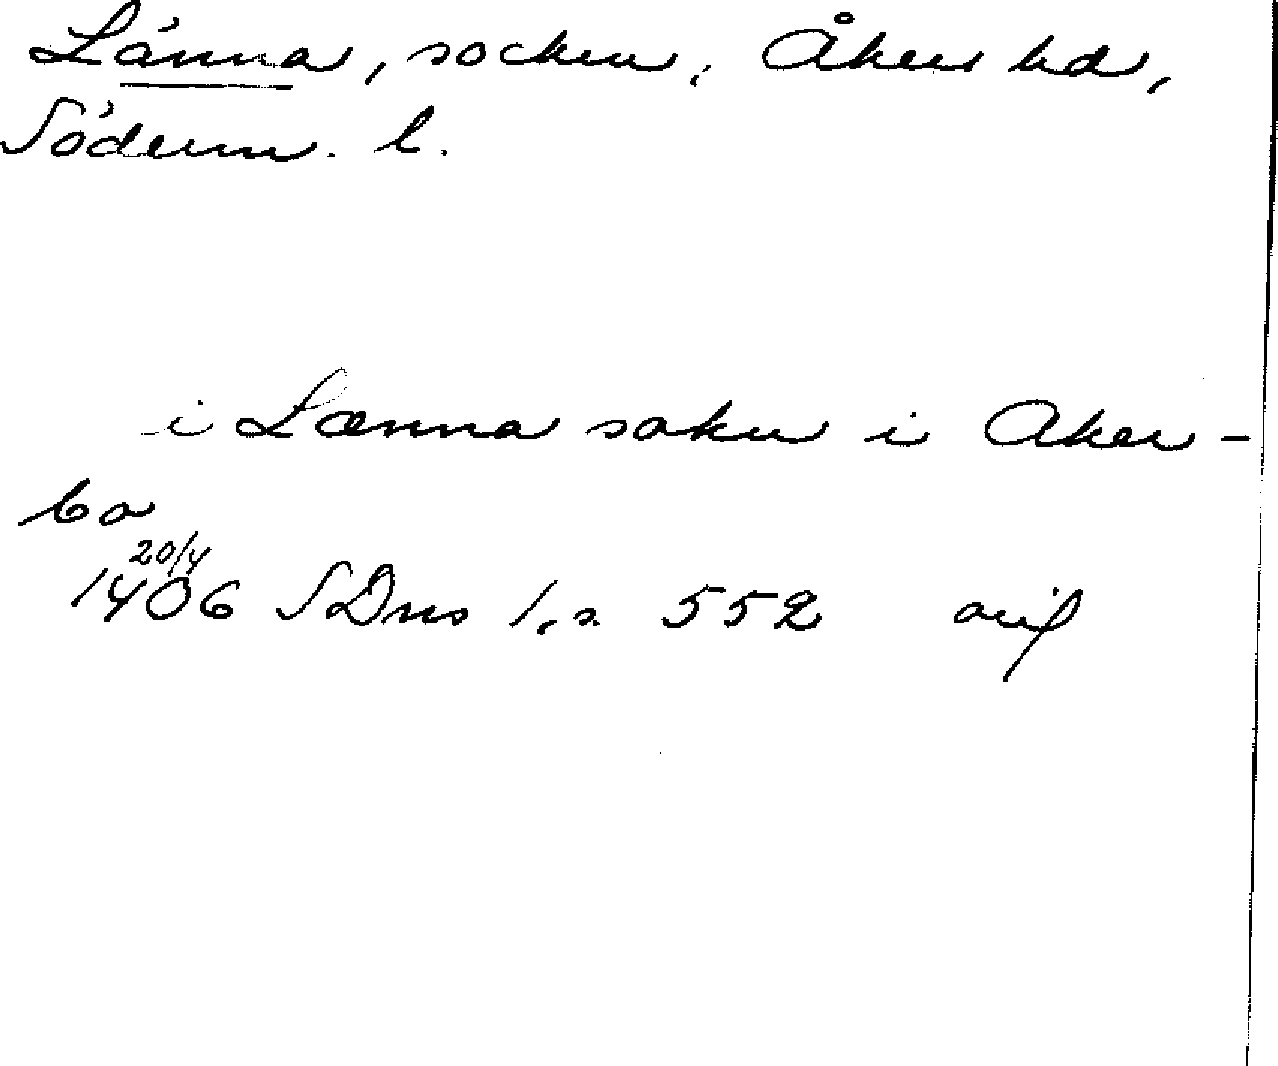 Länna, socken, Åkers hd,
Söderm. l.
i Lænna sokn i Aker-
bo
20/4
1406 SDns 1, s. 552 avs